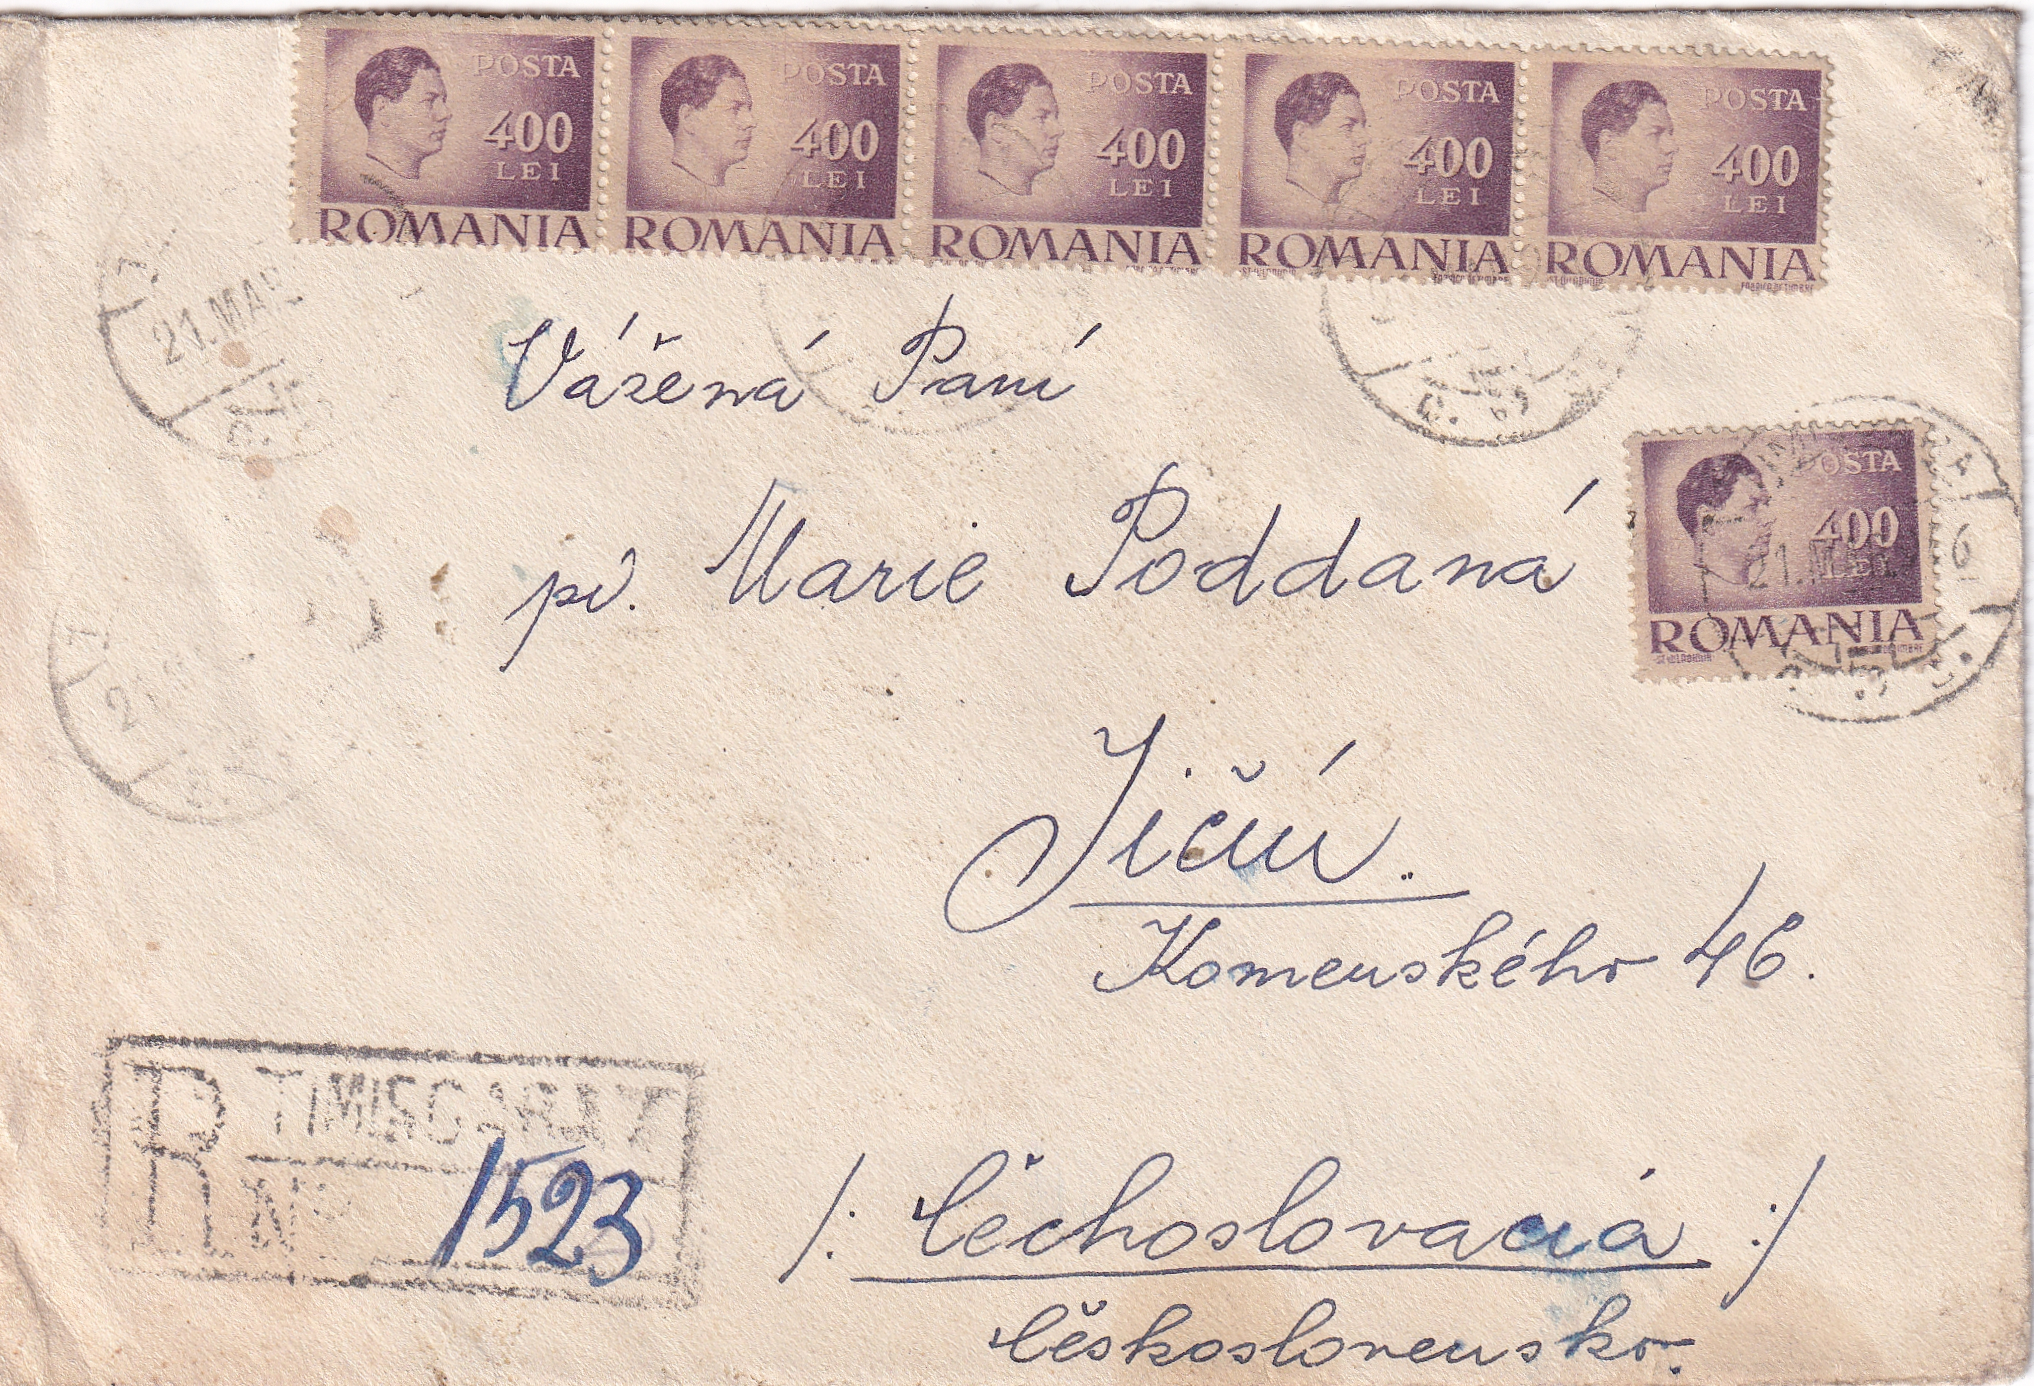 POSTA POSTA POSTA POSTA POSTA
400 400 400 400 400
LEI LEI LEI LEI LEI
ROMANIA ROMANIA ROMANIA ROMANIA ROMANIA
21.MAR
Vážená Paní
POSTA
400
LEI
ROMANIA
6
21.M
pí. Marie Poddaná
Jičín.
Komenského 46.
R TIMISOARA 7
No 1523
/: Čechoslovaciá :/
Československo.